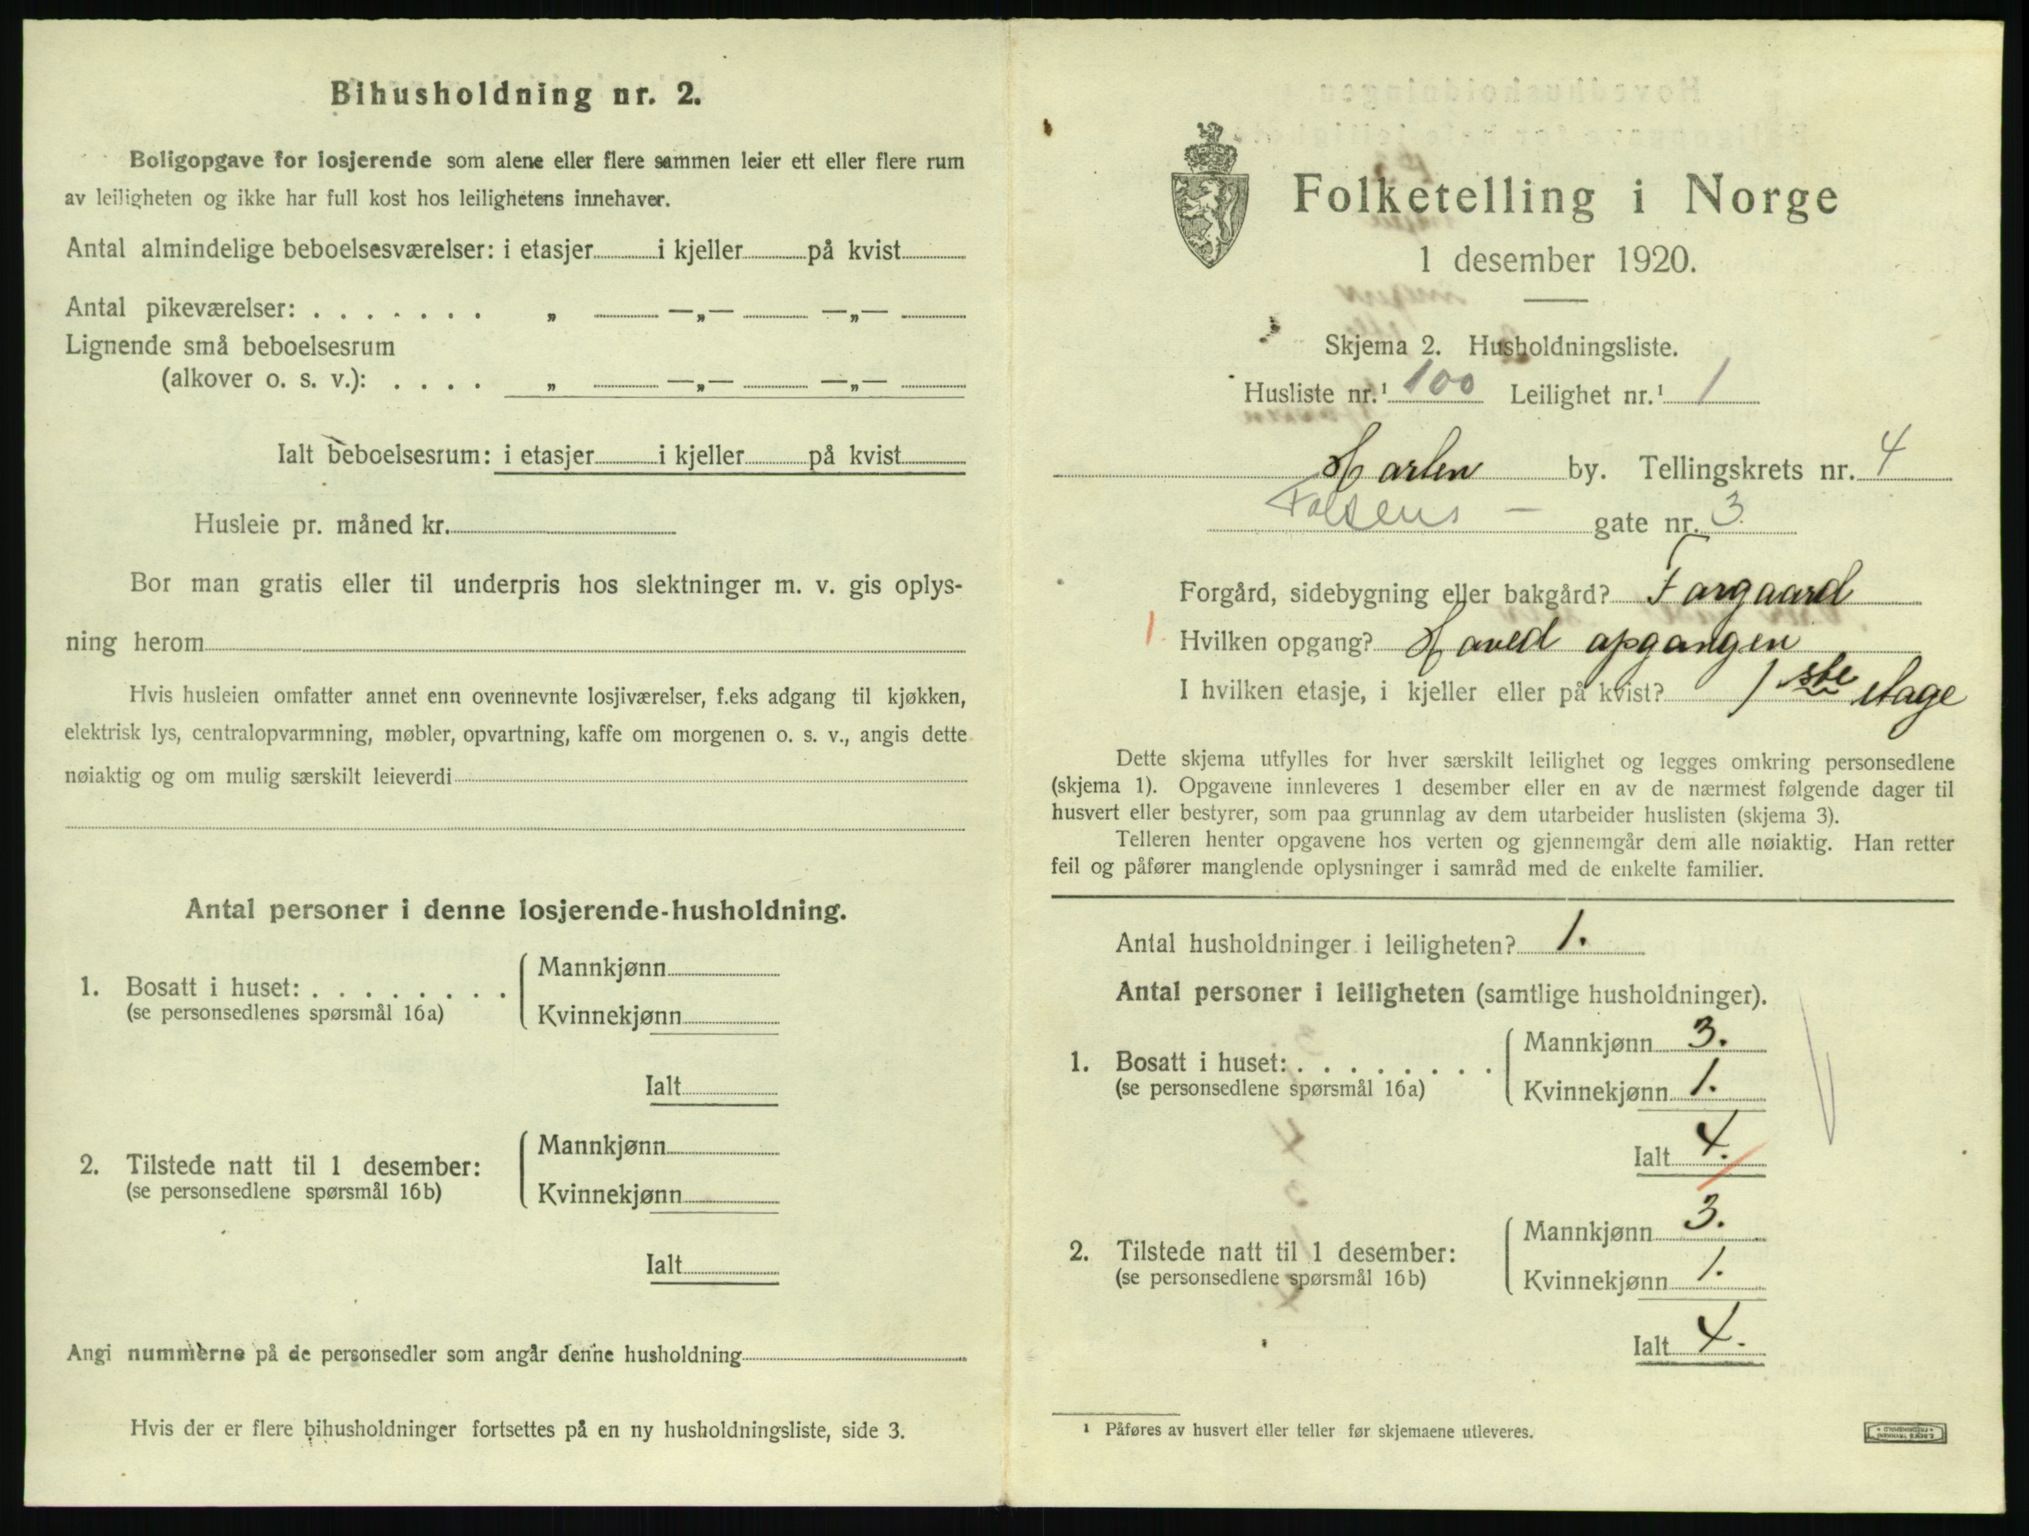 Bihusholdning nr. 2.
Boligopgave for losjerende som alene eller flere sammen leier ett eller flere rum
av leiligheten og ikke har full kost hos leilighetens innehaver.
Antal almindelige beboelsesværelser: i etasjer i kjeller på kvist
Antal pikeværelser: . . . . . . . „ —„— —„—
Lignende små beboelsesrum
(alkover o. s. v.): . . . . „ —„— —„—
Ialt beboelsesrum: i etasjer i kjeller på kvist
Husleie pr. måned kr.
Bor man gratis eller til underpris hos slektninger m. v. gis oplys-
ning herom
Hvis husleien omfatter annet enn ovennevnte losjiværelser, f.eks adgang til kjøkken,
elektrisk lys, centralopvarmning, møbler, opvartning, kaffe om morgenen o. s. v., angis dette
nøiaktig og om mulig særskilt leieverdi
Antal personer i denne losjerende-husholdning.
1. Bosatt i huset: . . . . . . . .
(se personsedlenes spørsmål 16a)
Mannkjønn
Kvinnekjønn
Ialt
2. Tilstede natt til 1 desember:
(se personsedlene spørsmål 16b)
Mannkjønn
Kvinnekjønn
Ialt
Angi nummerne på de personsedler som angår denne husholdning
Hvis der er flere bihusholdninger fortsettes på en ny husholdningsliste, side 3.
Folketelling i Norge
1 desember 1920.
Skjema 2. Husholdningsliste.
Husliste nr.¹ 100 Leilighet nr.¹ 1
Horten by. Tellingskrets nr. 4
Falsens — gate nr. 3
Forgård, sidebygning eller bakgård? Forgaard
1. Hvilken opgang? Hoved opgangen
I hvilken etasje, i kjeller eller på kvist? 1ste etage
Dette skjema utfylles for hver særskilt leilighet og legges omkring personsedlene
(skjema 1). Opgavene innleveres 1 desember eller en av de nærmest følgende dager til
husvert eller bestyrer, som paa grunnlag av dem utarbeider huslisten (skjema 3).
Telleren henter opgavene hos verten og gjennemgår dem alle nøiaktig. Han retter
feil og påfører manglende oplysninger i samråd med de enkelte familier.
Antal husholdninger i leiligheten? 1.
Antal personer i leiligheten (samtlige husholdninger).
1. Bosatt i huset: . . . . . . . .
(se personsedlene spørsmål 16a)
Mannkjønn 3.
Kvinnekjønn 1.
Ialt 4.
2. Tilstede natt til 1 desember:
(se personsedlene spørsmål 16b)
Mannkjønn 3.
Kvinnekjønn 1.
Ialt 4.
¹ Påføres av husvert eller teller før skjemaene utleveres.